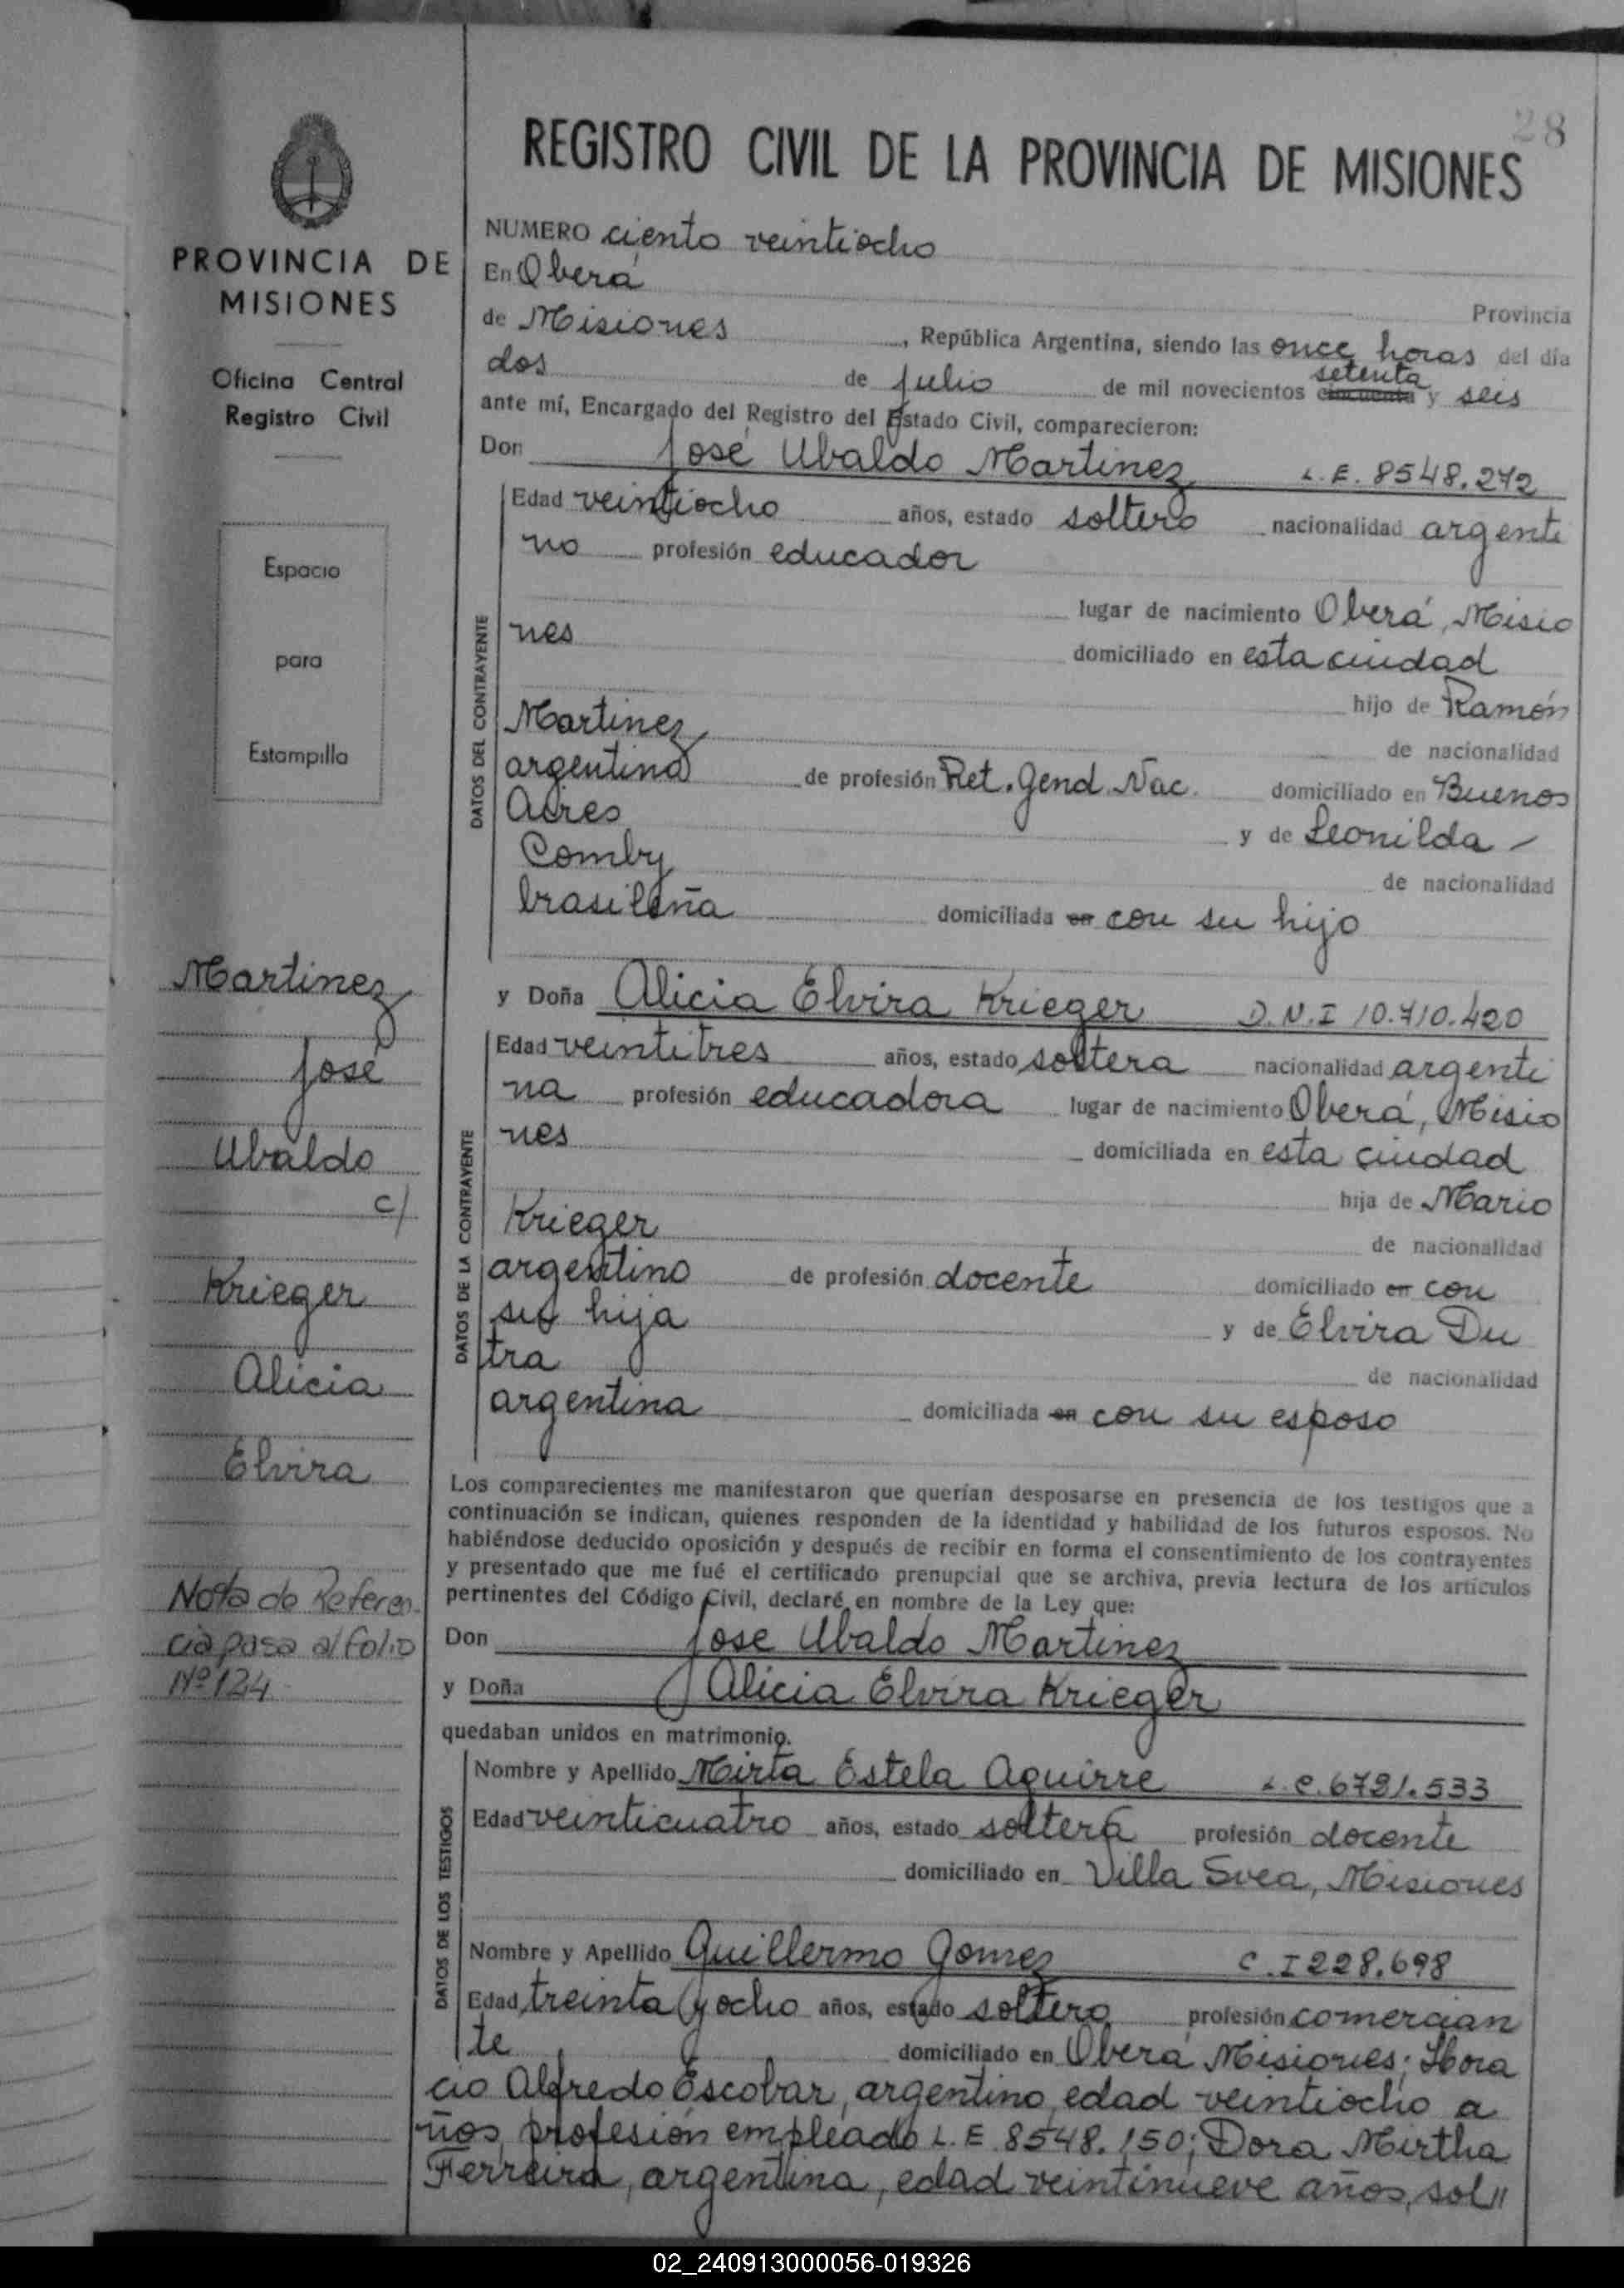 28
REGISTRO CIVIL DE LA PROVINCIA DE MISIONES
PROVINCIA DE
MISIONES
Oficina Central
Registro Civil
Espacio
para
Estampilla
Martinez
José
Ubaldo
c/
Krieger
Alicia
Elvira
Nota de Referen
cia pasa al folio
Nº 124
NUMERO ciento veintiocho
En Oberá
Provincia
de Misiones, República Argentina, siendo las once horas del día
dos de julio de mil novecientos cincuenta setenta y seis
ante mí, Encargado del Registro del Estado Civil, comparecieron:
Don José Ubaldo Martinez L.E. 8548.272
DATOS DEL CONTRAYENTE
Edad veintiocho años, estado soltero nacionalidad argenti
no profesión educador
lugar de nacimiento Oberá, Misio
nes domiciliado en esta ciudad
hijo de Ramón
Martinez de nacionalidad
argentina de profesión Ret. Gend. Nac. domiciliado en Buenos
Aires y de Leonilda -
Comby de nacionalidad
brasileña domiciliada en con su hijo
y Doña Alicia Elvira Krieger D.N.I 10.710.420
DATOS DE LA CONTRAYENTE
Edad veintitres años, estado soltera nacionalidad argenti
na profesión educadora lugar de nacimiento Oberá, Misio
nes domiciliada en esta ciudad
hija de Mario
Krieger de nacionalidad
argentino de profesión docente domiciliado en con
su hija y de Elvira Du
tra de nacionalidad
argentina domiciliada en con su esposo
Los comparecientes me manifestaron que querían desposarse en presencia de los testigos que a
continuación se indican, quienes responden de la identidad y habilidad de los futuros esposos. No
habiéndose deducido oposición y después de recibir en forma el consentimiento de los contrayentes
y presentado que me fué el certificado prenupcial que se archiva, previa lectura de los artículos
pertinentes del Código Civil, declaré en nombre de la Ley que:
Don Jose Ubaldo Martinez
y Doña Alicia Elvira Krieger
quedaban unidos en matrimonio.
DATOS DE LOS TESTIGOS
Nombre y Apellido Mirta Estela Aguirre L.C. 6721.533
Edad veinticuatro años, estado soltera profesión docente
domiciliado en Villa Svea, Misiones
Nombre y Apellido Guillermo Gomez C.I 228.698
Edad treinta y ocho años, estado soltero profesión comercian
te domiciliado en Oberá Misiones; Hora
cio Alfredo Escobar, argentino, edad veintiocho a
ños, profesión empleado L.E 8548.150; Dora Mirtha
Ferreira, argentina, edad veintinueve años, sol //
02_240913000056-019326